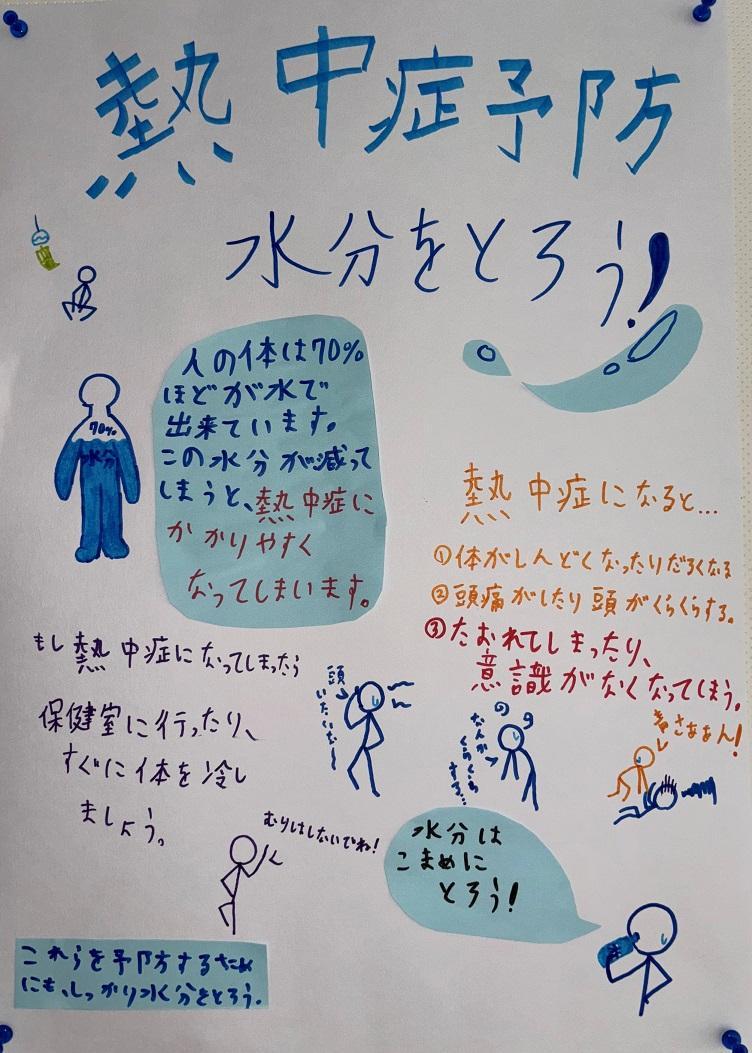 熱中症予防
水分をとろう!
人の体は70%
ほどが水で
出来ています。
この水分が減って
しまうと、熱中症に
かかりやすく
なってしまいます。
70%
水分
熱中症になると...
①体がしんどくなったりだるくなる
②頭痛がしたり頭がくらくらする。
③たおれてしまったり、
意識がなくなってしまう。
もし熱中症になってしまったら
保健室に行ったり、
すぐに体を冷し
ましょう。
頭
いたいな〜
なんか
くらくら
する...
さぁぁん!
むりはしないでね!
水分は
こまめに
とろう!
これらを予防するため
にも、しっかり水分をとろう。